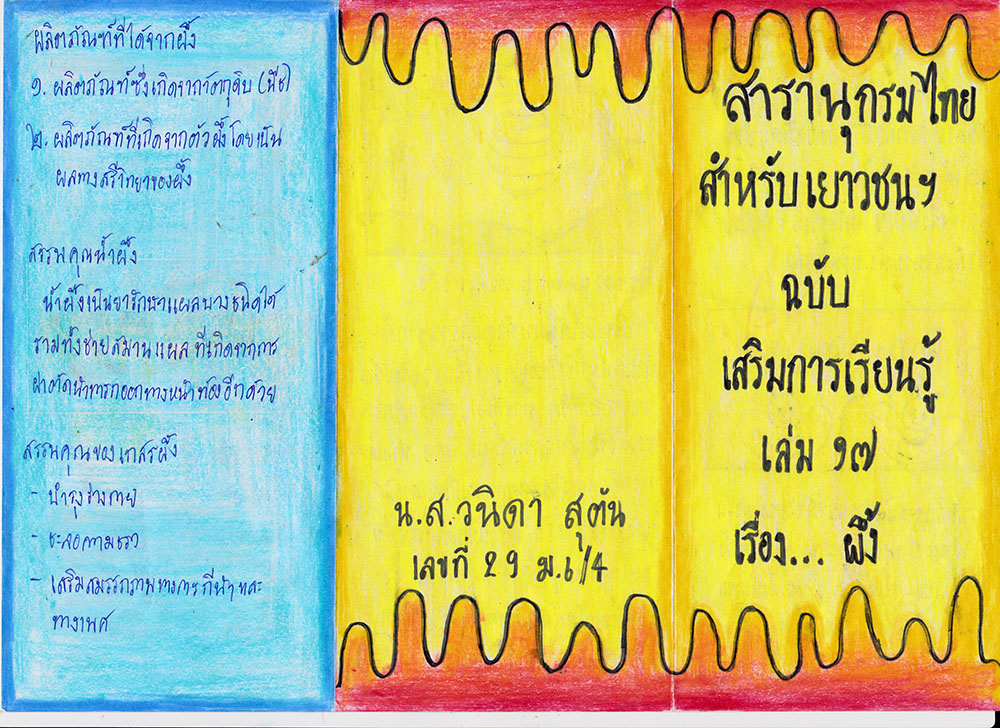 ผลิตภัณฑ์ที่ได้จากผึ้ง
๑. ผลิตภัณฑ์ซึ่งเกิดจากวัตถุดิบ (พืช)
๒. ผลิตภัณฑ์ที่เกิดจากตัวผึ้งโดยเป็น
ผลทางสรีวิทยาของผึ้ง
สรรพคุณน้ำผึ้ง
น้ำผึ้งเป็นยารักษาแผลบางชนิดได้
รวมทั้งช่วยสมานแผล ที่เกิดจากการ
ผ่าตัดนำทารกออกทางหน้าท้องอีกด้วย
สรรพคุณของเกสรผึ้ง
- บำรุงร่างกาย
- ชะลอความชรา
- เสริมสมรรถภาพทางการกีฬาและ
ทางเพศ
น.ส.วนิดา สุตัน
เลขที่ 29 ม.6/4
สารานุกรมไทย
สำหรับเยาวชนฯ
ฉบับ
เสริมการเรียนรู้
เล่ม ๑๗
เรื่อง... ผึ้ง